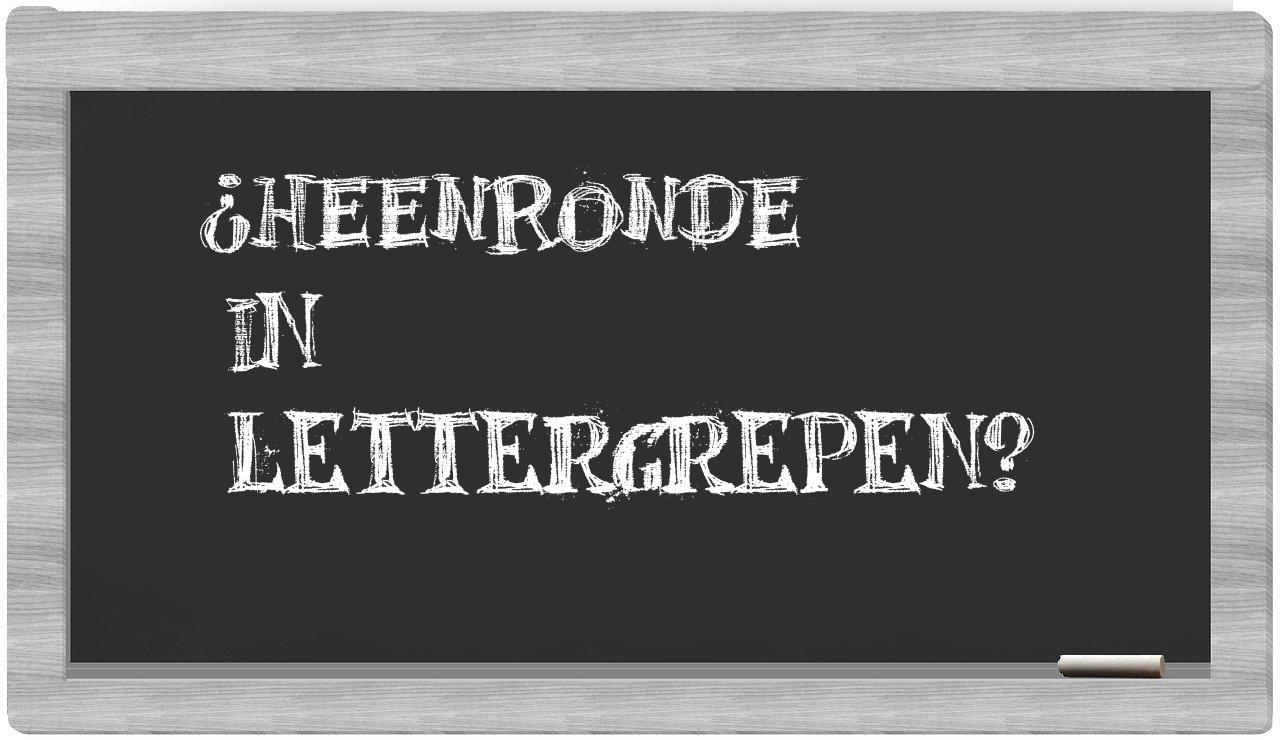 ¿HEENRONDE
IN
LETTERGREPEN?